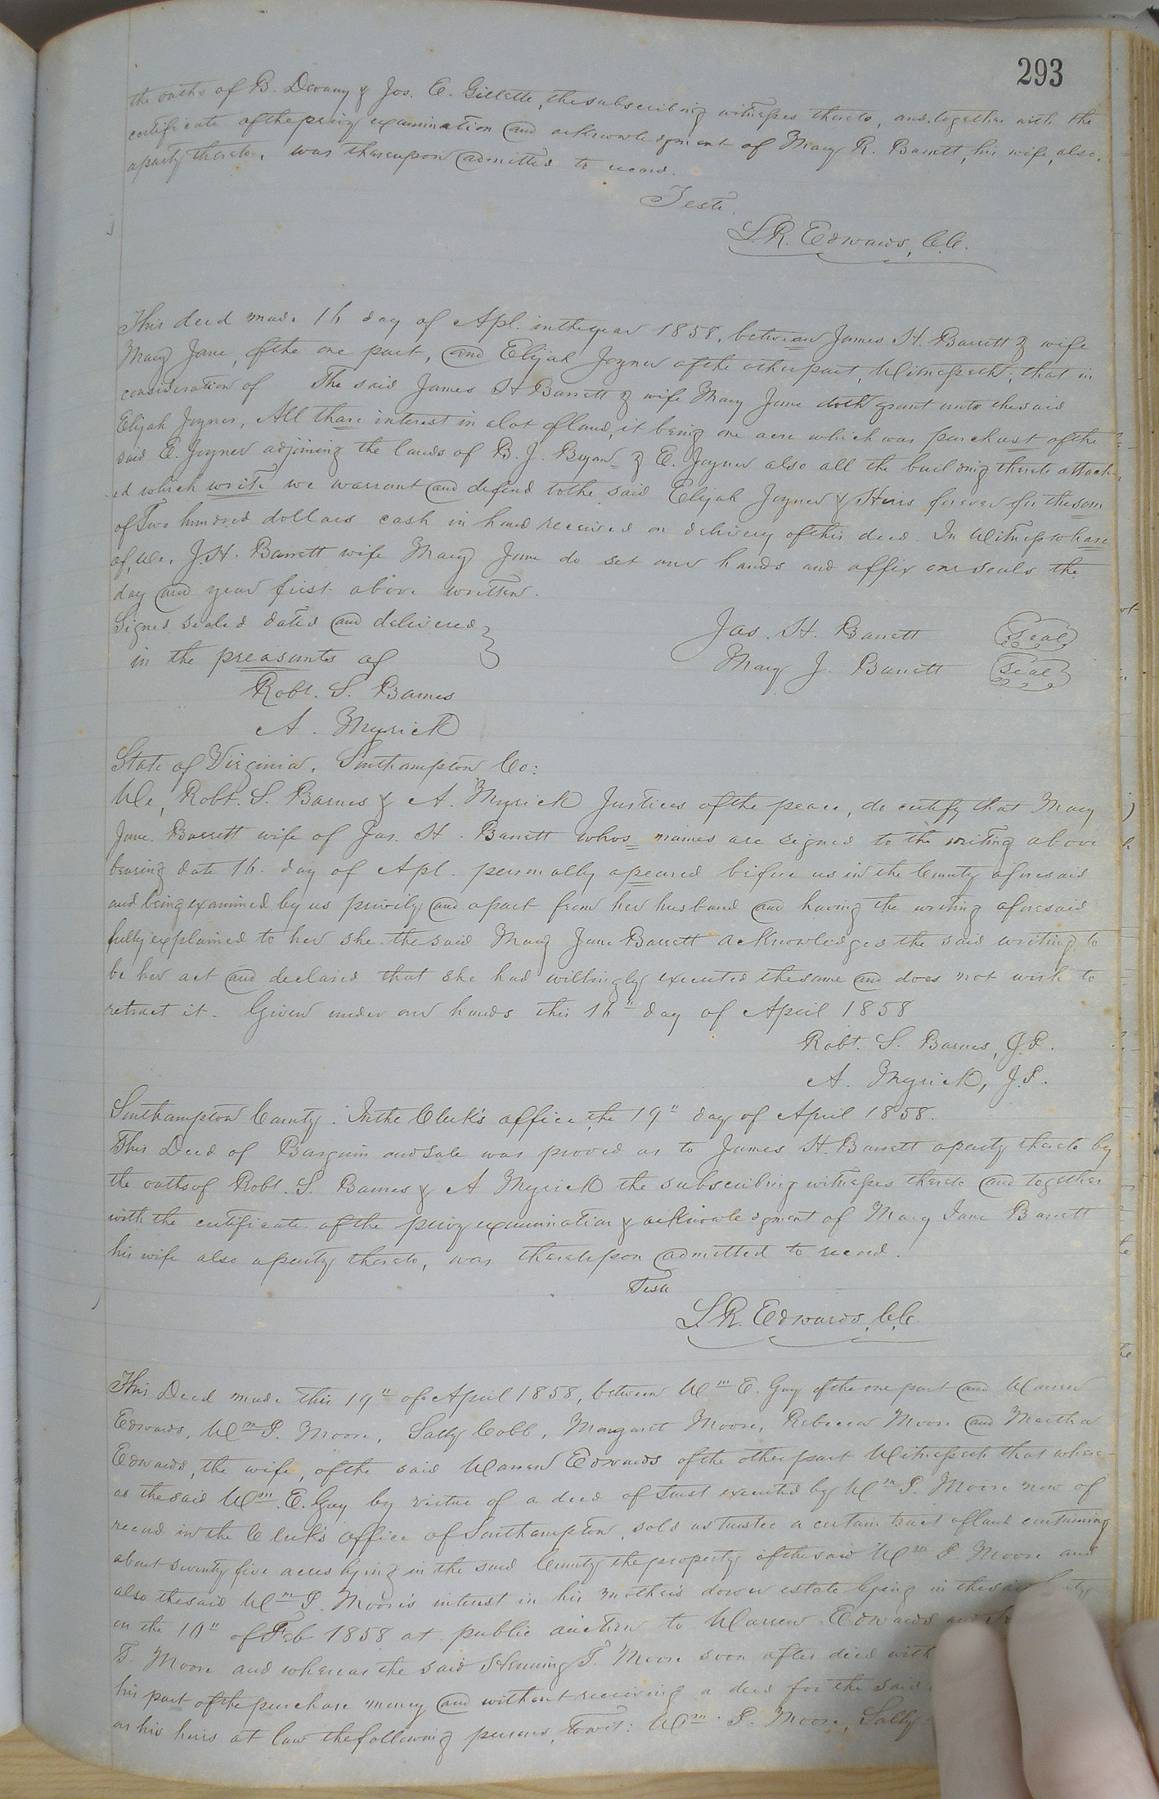 293
the oaths of B. Devany & Jos. C. Gillette, the subscribing witnesses thereto, and together with the
certificate of the privy examination and acknowledgment of Mary R. Barrett, his wife, also,
a party thereto, was thereupon admitted to record.
Teste.
L. R. Edwards, C.C.
This deed made 16 day of Apl. in the year 1858, between James H. Barrett & wife
Mary Jane, of the one part, and Elijah Joyner of the other part, Witnesseth; that in
consideration of The said James H Barrett & wife Mary Jane doth grant unto the said
Elijah Joyner, All thare interest in a lot of land, it being one acre which was purchast of the
said E. Joyner adjoining the lands of B. J. Bryan & E. Joyner also all the building thereto attach
ed which write we warrant and defend to the said Elijah Joyner & Heirs forever for the som
of Two hundred dollars cash in hand received on delivery of this deed. In Witness whare
of We, J. H. Barrett wife Mary Jane do set our hands and affix our seals the
day and year first above written.
Signed sealed dated and delivered
in the preasants of
Jas. H. Barrett Seal
Mary J. Barrett Seal
Robt. S. Barnes
A. Myrick
State of Virginia, Southampton Co:
We, Robt. S. Barnes & A. Myrick Justices of the peace, do certify that Mary
Jane Barrett wife of Jas. H. Barrett whos names are signed to the writing above
bearing date 16. day of Apl. personally apeared before us in the County aforesaid
and being examined by us privily and apart from her husband and having the writing aforesaid
fully explained to her she the said Mary Jane Barrett acknowledges the said writing to
be her act and declared that she had willingly executed the same and does not wish to
retract it. Given under our hands this 16" day of April 1858
Robt. S. Barnes, J.P.
A. Myrick, J.P.
Southampton County. In the Clerk's office, the 19" day of April 1858.
This Deed of Bargain and Sale was proved as to James H. Barrett a party thereto by
the oaths of Robt. S. Barnes & A Myrick the subscribing witnesses thereto and together
with the certificate of the privy examination & acknowledgment of Mary Jane Barrett
his wife also a party thereto, was thereupon admitted to record.
Teste
L. R. Edwards, C.C.
This Deed made this 19" of April 1858, between Wm E. Guy of the one part and Warren
Edwards, Wm P. Moore, Sally Cobb, Margaret Moore, Rebecca Moore and Martha
Edwards, the wife, of the said Warren Edwards of the other part Witnesseth that where-
as the said Wm. E. Guy by virtue of a deed of trust executed by Wm P. Moore now of
record in the Clerk's office of Southampton, sold as trustee a certain tract of land containing
about seventy five acres lying in the said County the property of the said Wm P Moore and
also the said Wm P. Moore's interest in his mother's dower estate lying in the said
on the 10" of Feb 1858 at public auction to Warren Edwards and
T. Moore and whereas the said T. Moore soon after died with
his part of the purchase money and without receiving a deed for the said
as his heirs at law the following persons, towit: Wm. P. Moore, Sally